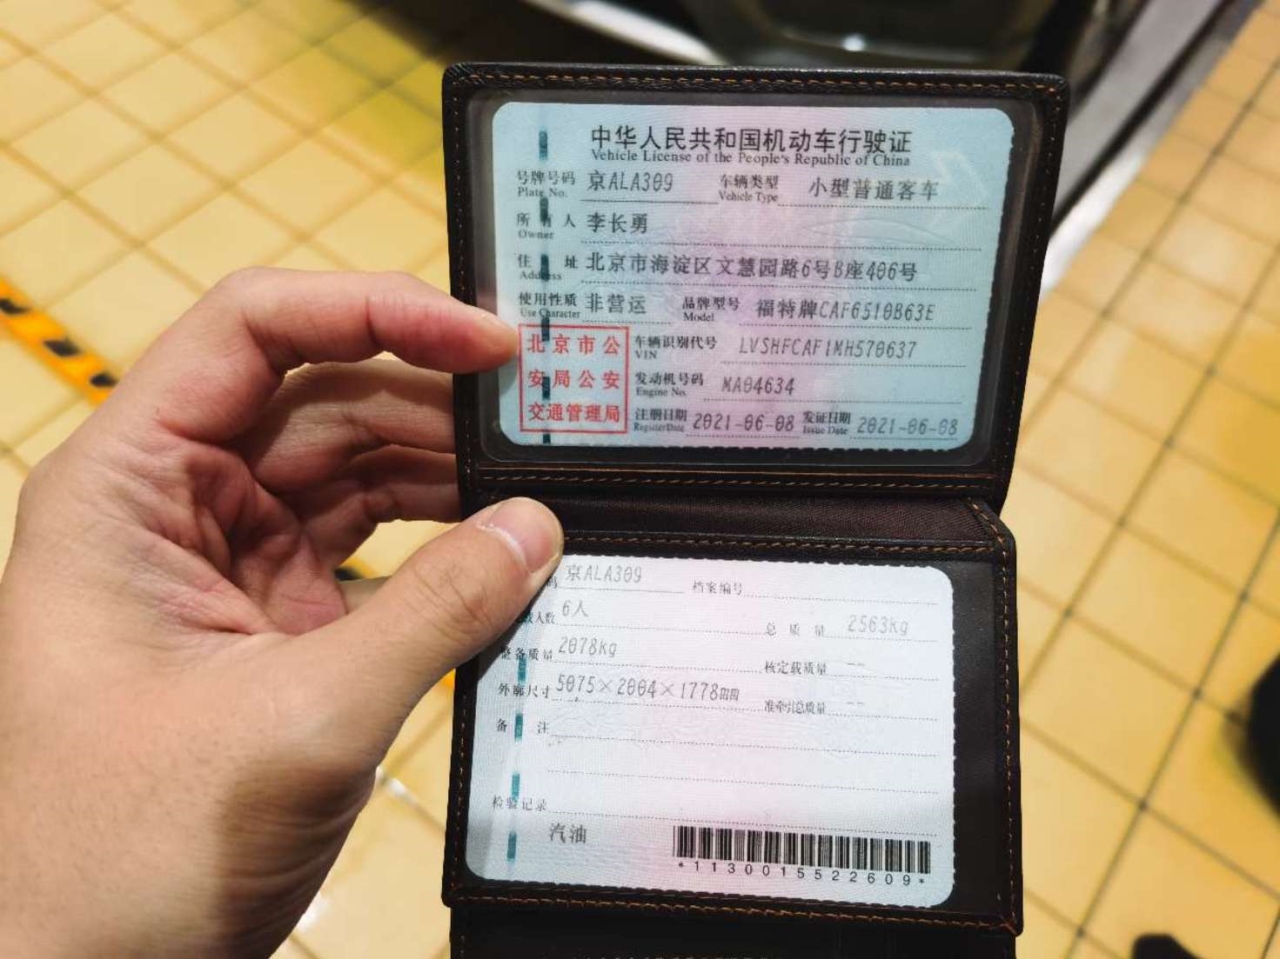 中华人民共和国机动车行驶证
Vehicle License of the People's Republic of China
号牌号码 京ALA309 车辆类型 小型普通客车
Plate No. Vehicle Type
所有人 李长勇
Owner
住址 北京市海淀区文慧园路6号B座406号
Address
使用性质 非营运 品牌型号 福特牌CAF6510B63E
Use Character Model
北京市公
安局公安
交通管理局
车辆识别代号 LVSHFCAF1MH570637
VIN
发动机号码 MA04634
Engine No.
注册日期 2021-06-08 发证日期 2021-06-08
Register Date Issue Date
码 京ALA309 档案编号
人数 6人 总质量 2563kg
整备质量 2078kg 核定载质量 --
外廓尺寸 5075×2004×1778mm 准牵引总质量 --
备注
检验记录
汽油
*1130015522609*